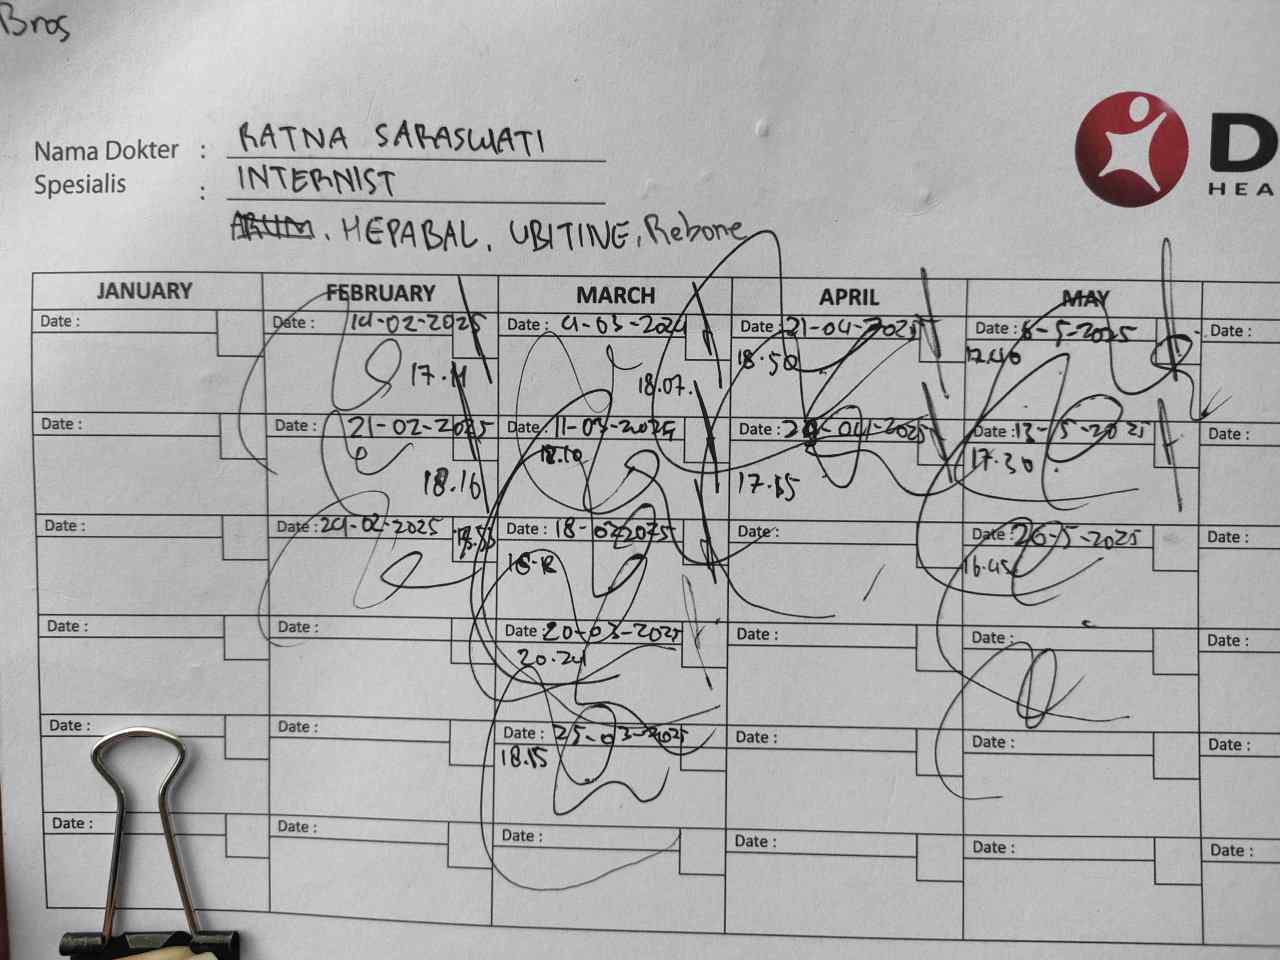 Bros
Nama Dokter : RATNA SARASWATI
Spesialis : INTERNIST
HEPABAL, UBITINE, Rebone
D
HEA
JANUARY FEBRUARY MARCH APRIL MAY
Date : Date : 14-02-2025 Date : 4-03-2024 Date : 21-04-2025 Date : 6-5-2025 Date :
17.11 18.07. 18.50 17.40
Date : Date : 21-02-2025 Date : 11-03-2024 Date : Date : 13-5-2025 Date :
18.16 18.10 17.30
Date : Date : 24-02-2025 Date : 18-03-2025 Date : Date : 26-5-2025 Date :
16.45
Date : Date : Date : 20-03-2025 Date : Date : Date :
20.24
Date : Date : Date : 25-03-2025 Date : Date : Date :
18.15
Date : Date : Date : Date : Date : Date :